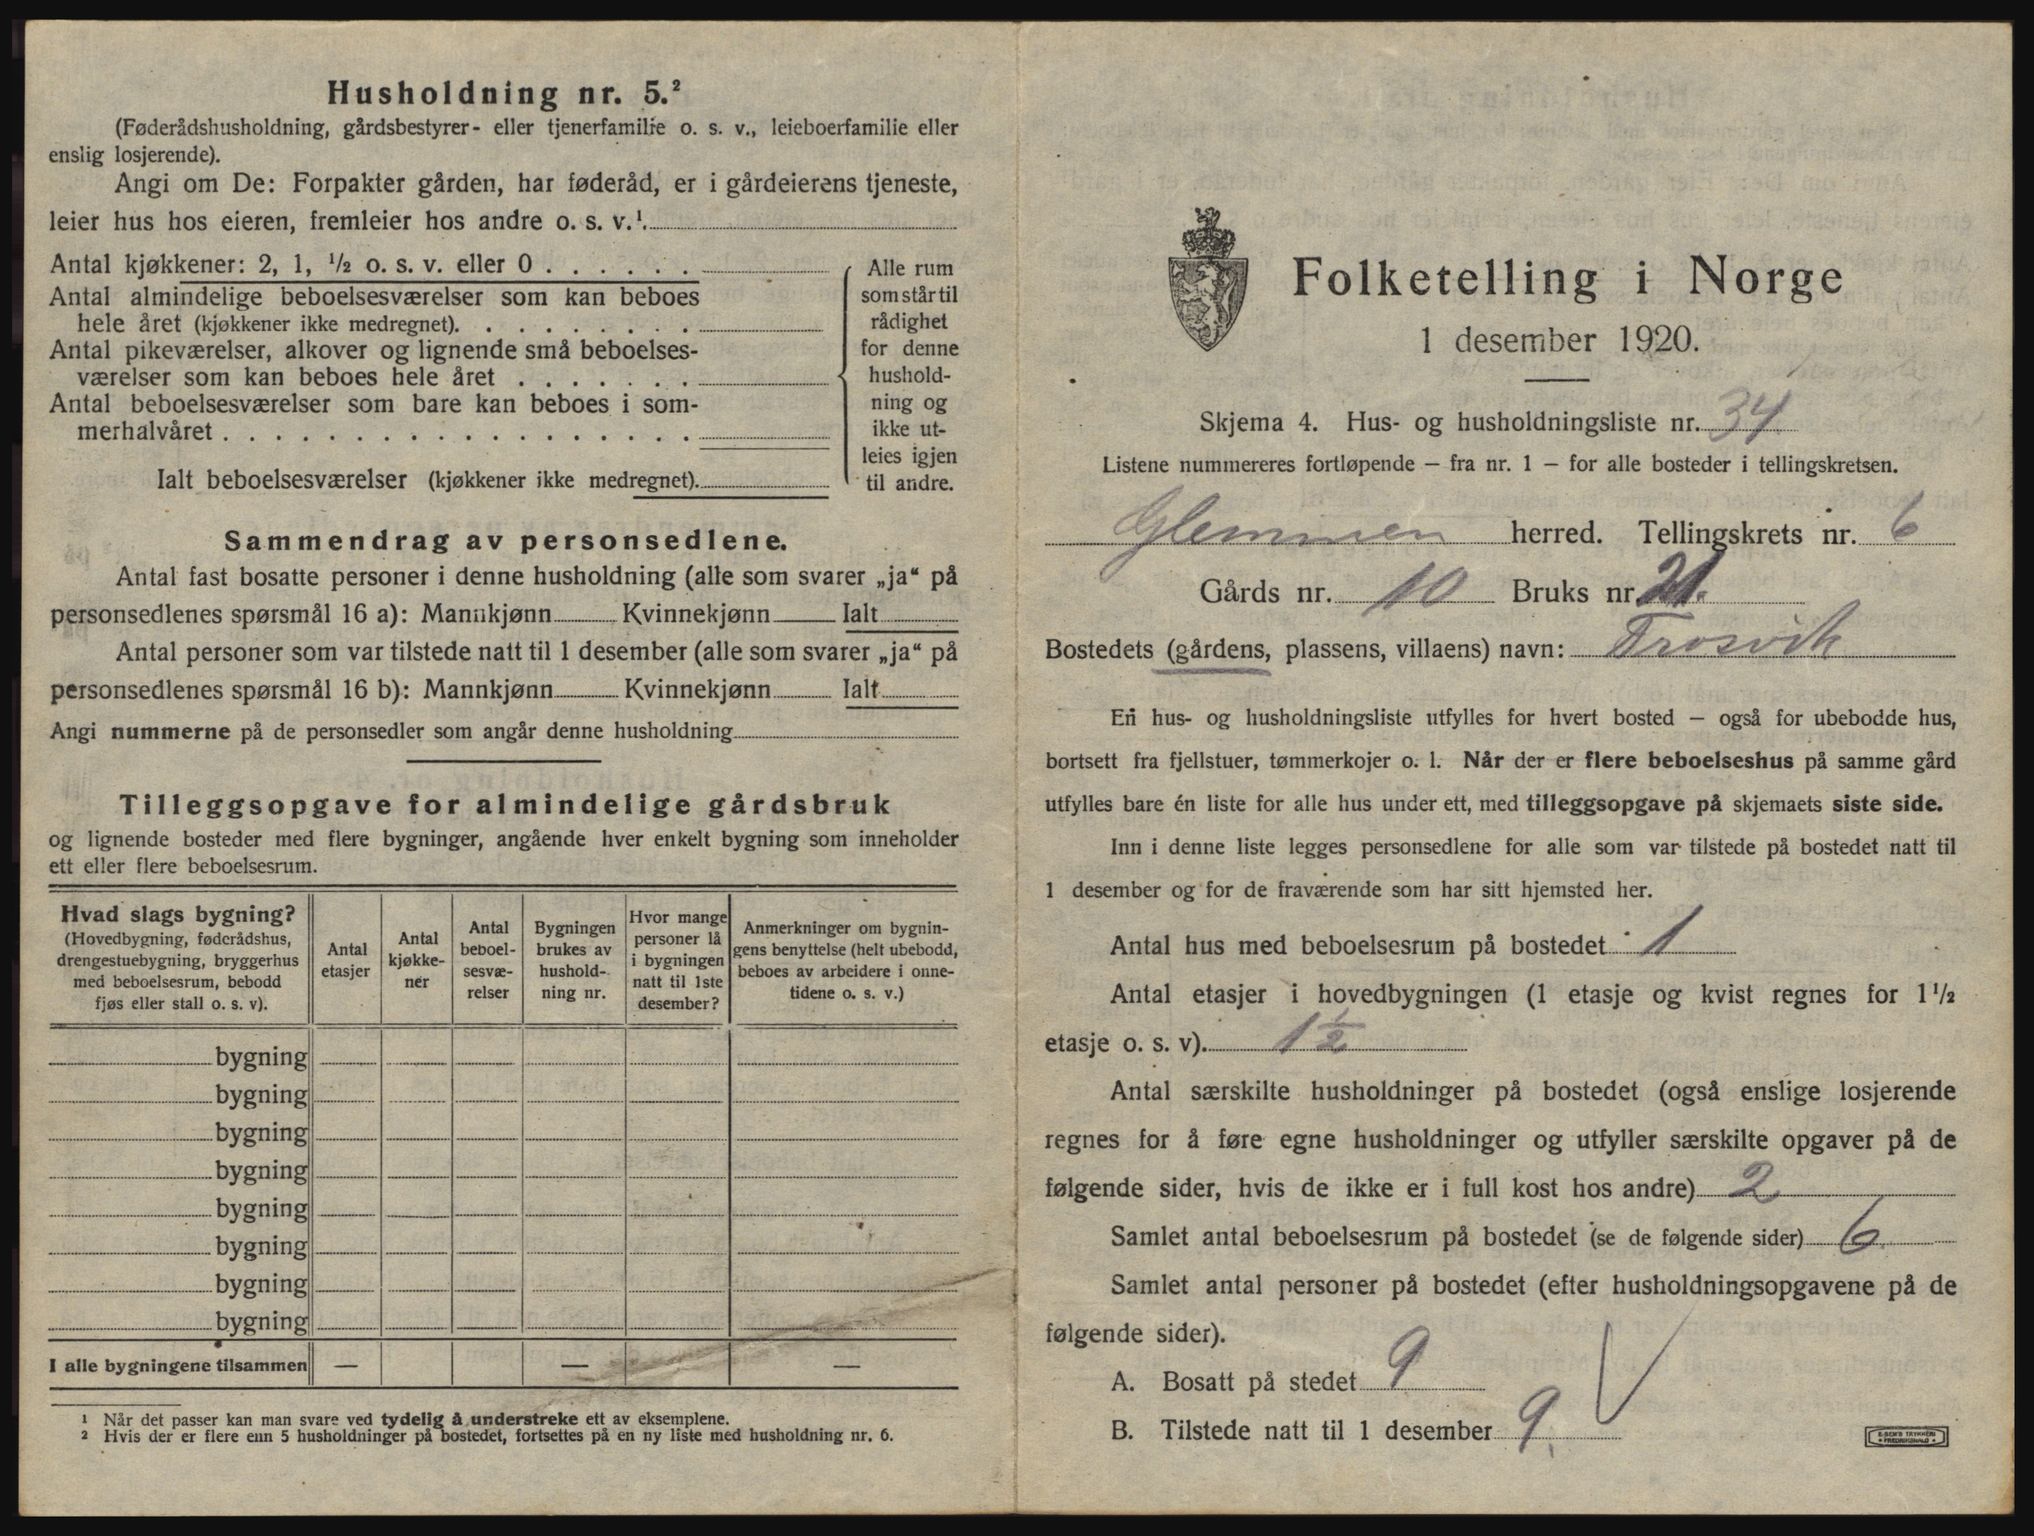 Husholdning nr. 5.²
(Føderådshusholdning, gårdsbestyrer- eller tjenerfamilie o. s. v., leieboerfamilie eller
enslig losjerende).
Angi om De: Forpakter gården, har føderåd, er i gårdeierens tjeneste,
leier hus hos eieren, fremleier hos andre o. s. v.¹.
Antal kjøkkener: 2, 1, ½ o. s. v. eller 0
Antal almindelige beboelsesværelser som kan beboes
hele året (kjøkkener ikke medregnet).
Antal pikeværelser, alkover og lignende små beboelses-
værelser som kan beboes hele året
Antal beboelsesværelser som bare kan beboes i som-
merhalvåret
Ialt beboelsesværelser (kjøkkener ikke medregnet).
Alle rum
som står til
rådighet
for denne
hushold-
ning og
ikke ut-
leies igjen
til andre.
Sammendrag av personsedlene.
Antal fast bosatte personer i denne husholdning (alle som svarer „ja“ på
personsedlenes spørsmål 16 a): Mannkjønn Kvinnekjønn Ialt
Antal personer som var tilstede natt til 1 desember (alle som svarer „ja“ på
personsedlenes spørsmål 16 b): Mannkjønn Kvinnekjønn Ialt
Angi nummerne på de personsedler som angår denne husholdning
Tilleggsopgave for almindelige gårdsbruk
og lignende bosteder med flere bygninger, angående hver enkelt bygning som inneholder
ett eller flere beboelsesrum.
Hvad slags bygning?
(Hovedbygning, føderådshus,
drengestuebygning, bryggerhus
med beboelsesrum, bebodd
fjøs eller stall o. s. v).
Antal
etasjer
Antal
kjøkke-
ner
Antal
beboel-
sesvæ-
relser
Bygningen
brukes av
hushold-
ning nr.
Hvor mange
personer lå
i bygningen
natt til 1ste
desember?
Anmerkninger om bygnin-
gens benyttelse (helt ubebodd,
beboes av arbeidere i onne-
tidene o. s. v.)
bygning
bygning
bygning
bygning
bygning
bygning
bygning
bygning
I alle bygningene tilsammen — — —
¹ Når det passer kan man svare ved tydelig å understreke ett av eksemplene.
² Hvis der er flere enn 5 husholdninger på bostedet, fortsettes på en ny liste med husholdning nr. 6.
Folketelling i Norge
1 desember 1920.
Skjema 4. Hus- og husholdningsliste nr. 34
Listene nummereres fortløpende – fra nr. 1 – for alle bosteder i tellingskretsen.
Glemmen herred. Tellingskrets nr. 6
Gårds nr. 10 Bruks nr. 21.
Bostedets (gårdens, plassens, villaens) navn: Trosvik
En hus- og husholdningsliste utfylles for hvert bosted – også for ubebodde hus,
bortsett fra fjellstuer, tømmerkojer o. l. Når der er flere beboelseshus på samme gård
utfylles bare én liste for alle hus under ett, med tilleggsopgave på skjemaets siste side.
Inn i denne liste legges personsedlene for alle som var tilstede på bostedet natt til
1 desember og for de fraværende som har sitt hjemsted her.
Antal hus med beboelsesrum på bostedet 1
Antal etasjer i hovedbygningen (1 etasje og kvist regnes for 1½
etasje o. s. v). 1½
Antal særskilte husholdninger på bostedet (også enslige losjerende
regnes for å føre egne husholdninger og utfyller særskilte opgaver på de
følgende sider, hvis de ikke er i full kost hos andre) 2
Samlet antal beboelsesrum på bostedet (se de følgende sider) 6
Samlet antal personer på bostedet (efter husholdningsopgavene på de
følgende sider).
A. Bosatt på stedet 9
B. Tilstede natt til 1 desember 9.